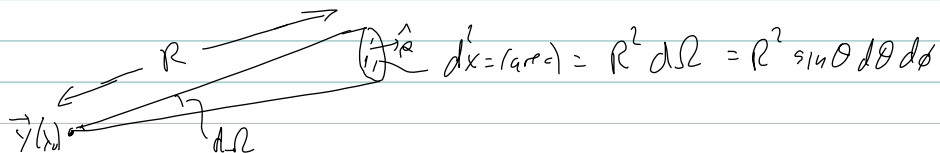 R
R̂
d²x = (area) = R² dΩ = R² sinθ dθ dφ
dΩ